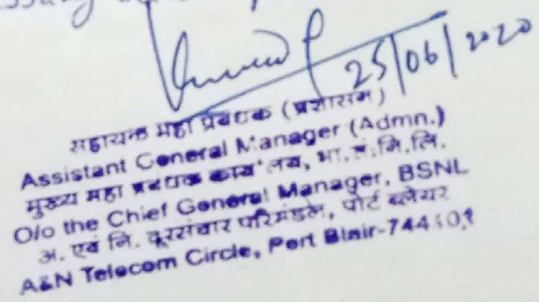 25/06/2020
सहायक महा प्रबंधक (प्रशासन)
Assistant General Manager (Admn.)
मुख्य महा प्रबंधक कार्यालय, भा.सं.नि.लि.
O/o the Chief General Manager, BSNL
अ. एवं नि. दूरसंचार परिमंडल, पोर्ट ब्लेयर
A&N Telecom Circle, Port Blair-744101